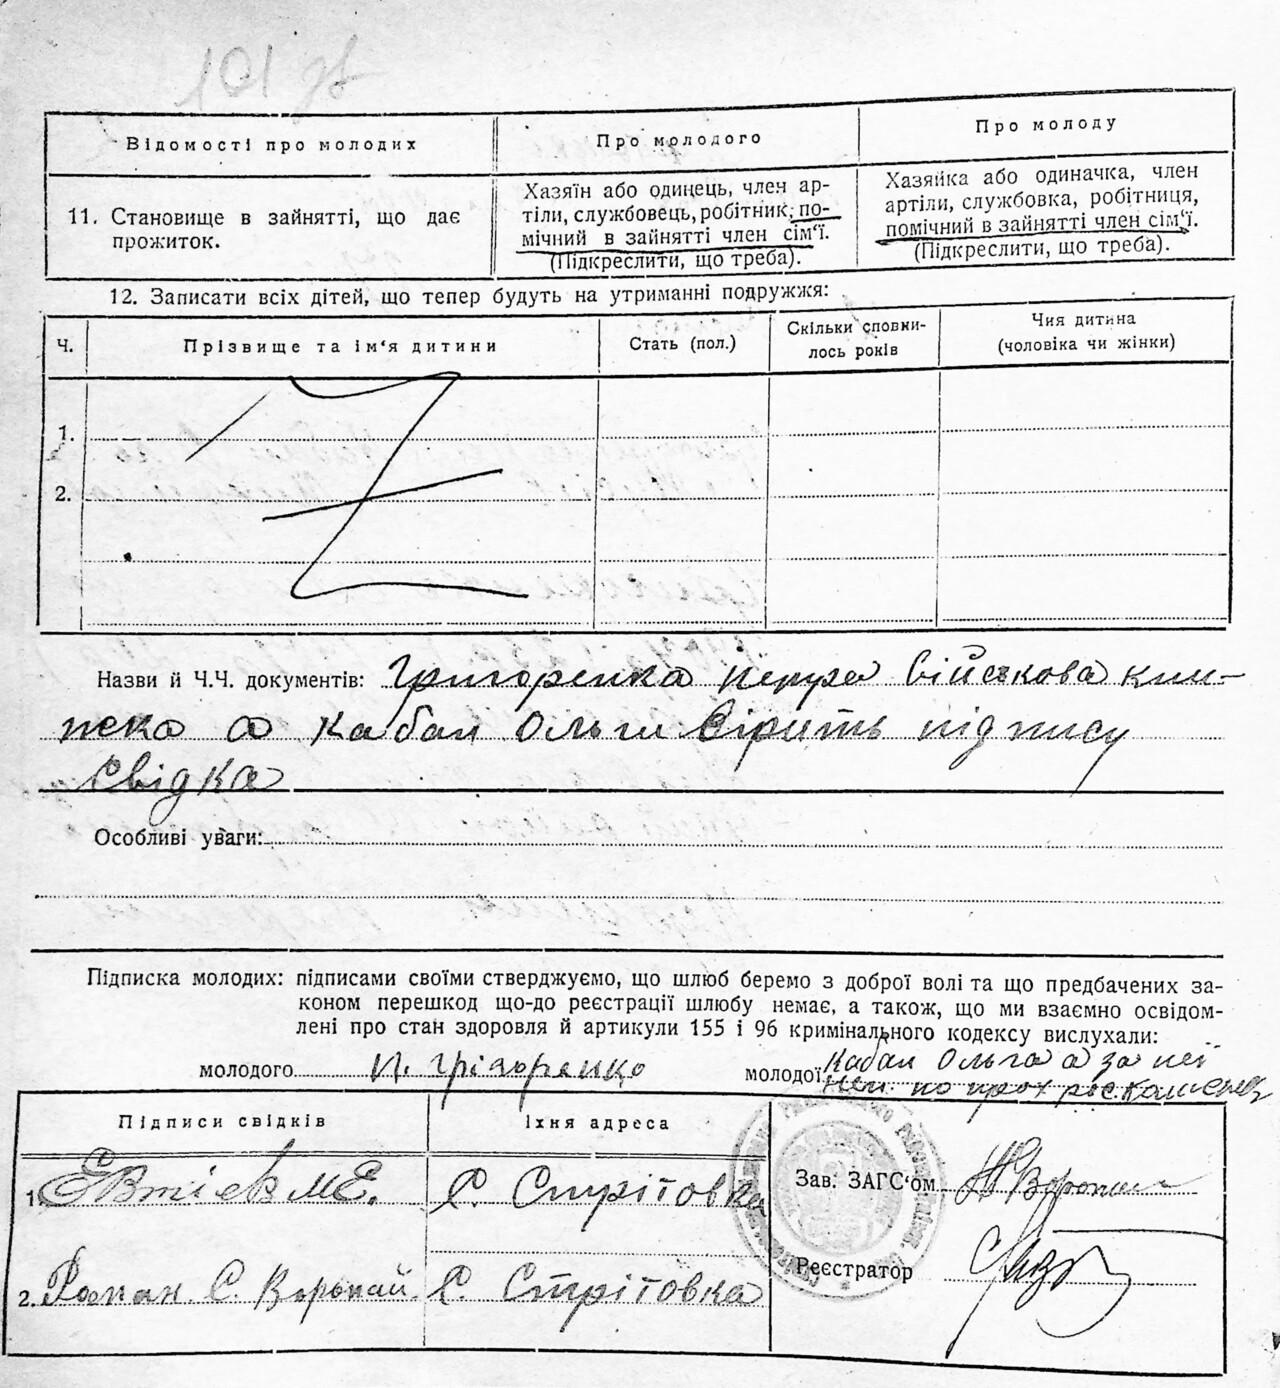 101 зв
Відомості про молодих
Про молодого
Про молоду
11. Становище в зайнятті, що дає
прожиток.
Хазяїн або одинець, член ар-
тіли, службовець, робітник, по-
мічний в зайнятті член сім'ї.
(Підкреслити, що треба).
Хазяйка або одиначка, член
артіли, службовка, робітниця,
помічний в зайнятті член сім'ї.
(Підкреслити, що треба).
12. Записати всіх дітей, що тепер будуть на утриманні подружжя:
Ч.
Прізвище та ім'я дитини
Стать (пол.)
Скільки сповни-
лось років
Чия дитина
(чоловіка чи жінки)
1.
2.
Назви й Ч.Ч. документів: Григоренка Петра військова кни-
жска а Кабал Ольги вірить підпису
свідка
Особливі уваги:
Підписка молодих: підписами своїми стверджуємо, що шлюб беремо з доброї волі та що предбачених за-
коном перешкод що-до реєстрації шлюбу немає, а також, що ми взаємно освідом-
лені про стан здоров'я й артикули 155 і 96 кримінального кодексу вислухали:
молодого П. Грігоренко
молодої Кабал Ольга а за неї
неп. по прох рос.
Підписи свідків
Їхня адреса
1. М.Е. С. Стрітовка
2. Роман С. Воропай С. Стрітовка
Зав. ЗАГС'ом
Реєстратор